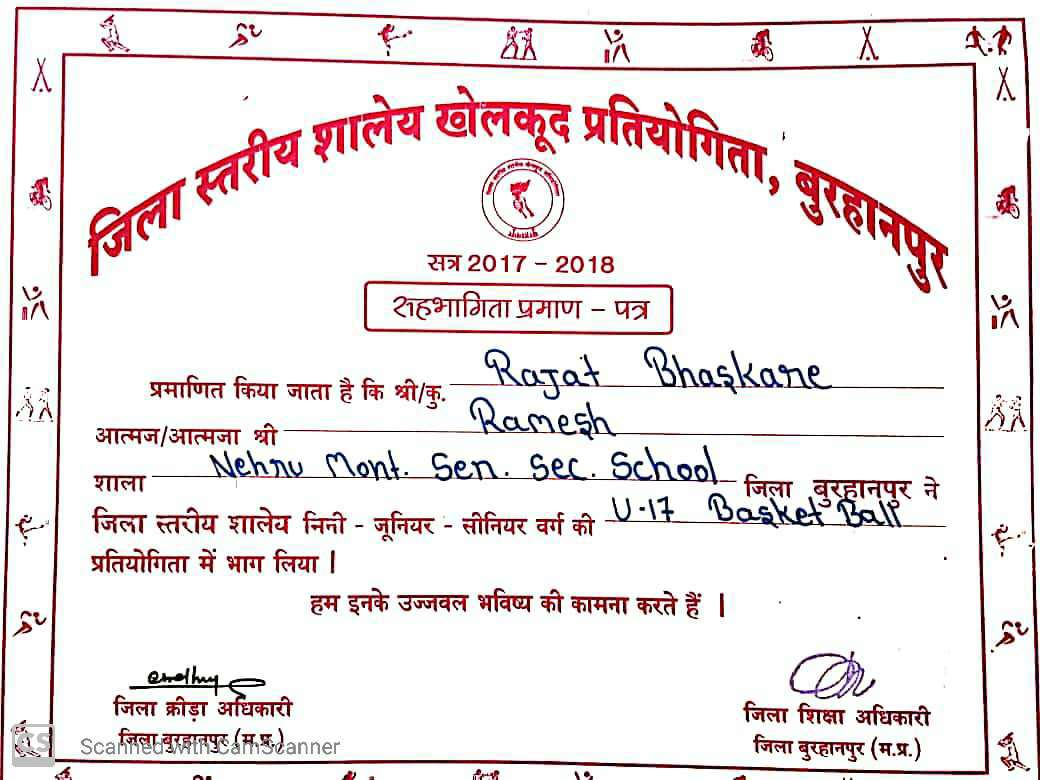 जिला स्तरीय शालेय खेलकूद प्रतियोगिता, बुरहानपुर
सत्र 2017 – 2018
सहभागिता प्रमाण – पत्र
प्रमाणित किया जाता है कि श्री/कु. Rajat Bhaskare
आत्मज/आत्मजा श्री Ramesh
शाला Nehru Mont. Sen. Sec. School जिला बुरहानपुर ने
जिला स्तरीय शालेय मिनी - जूनियर - सीनियर वर्ग की U-17 Basket Ball
प्रतियोगिता में भाग लिया |
हम इनके उज्जवल भविष्य की कामना करते हैं |
जिला क्रीड़ा अधिकारी
जिला बुरहानपुर (म.प्र.)
जिला शिक्षा अधिकारी
जिला बुरहानपुर (म.प्र.)
CS Scanned with CamScanner